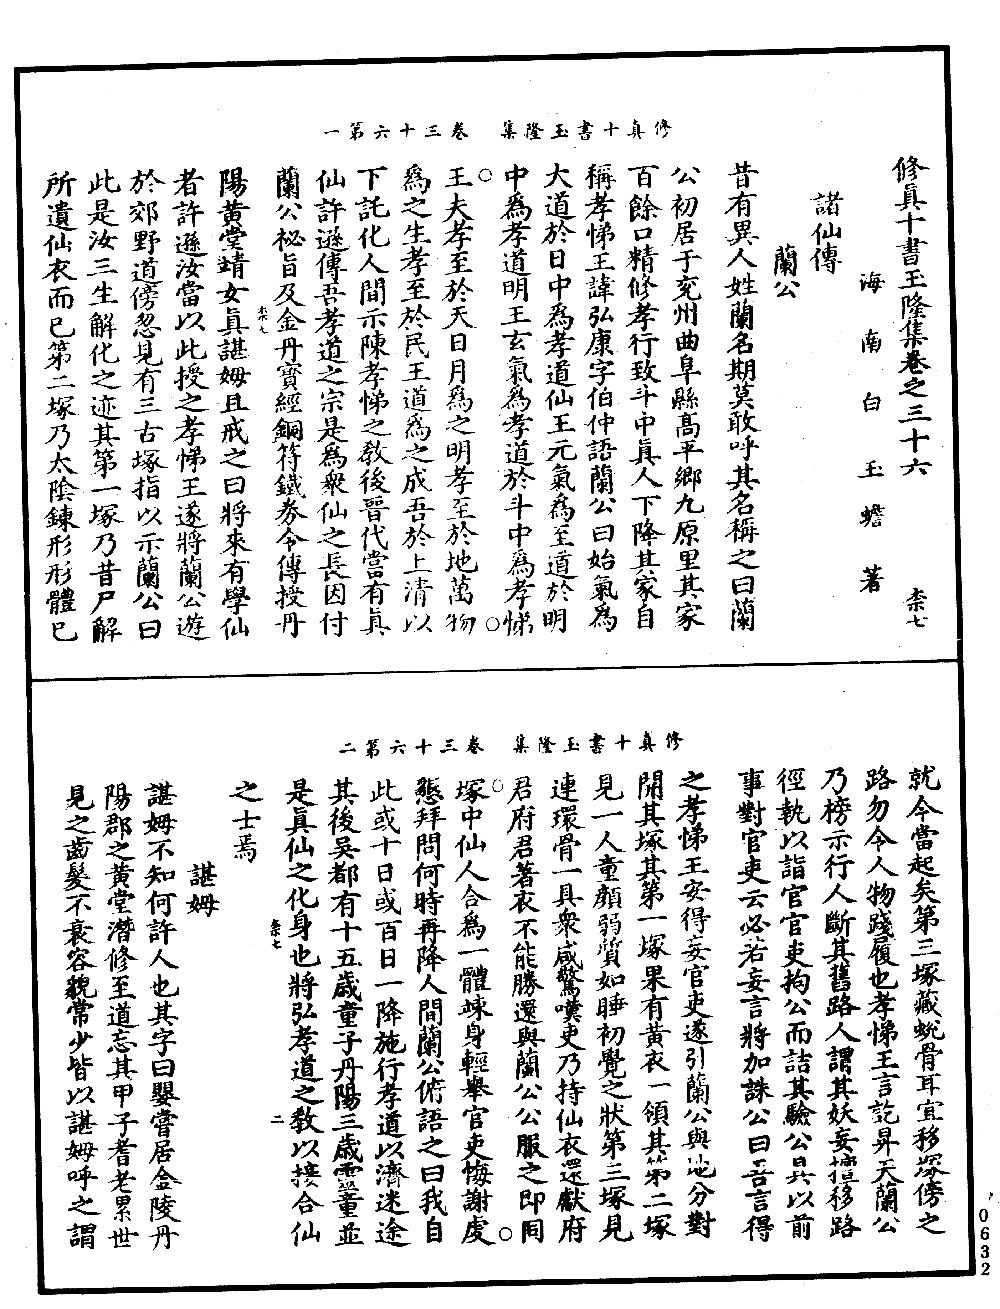 修真十書玉隆集　卷三十六第一
修真十書玉隆集卷之三十六　柰七
海南白玉蟾著
諸仙傳
蘭公
昔有異人姓蘭名期莫敢呼其名稱之曰蘭
公初居于兗州曲阜縣高平鄉九原里其家
百餘口精修孝行致斗中真人下降其家自
稱孝悌王諱弘康字伯仲語蘭公曰始氣為
大道於日中為孝道仙王元氣為至道於明
中為孝道明王玄氣為孝道於斗中為孝悌
王夫孝至於天日月為之明孝至於地萬物
為之生孝至於民王道為之成吾於上清以
下託化人間示陳孝悌之教後晉代當有真
仙許遜傳吾孝道之宗是為衆仙之長因付
蘭公祕旨及金丹寶經銅符鐵券令傳授丹
柰七
陽黃堂靖女真諶姆且戒之曰將來有學仙
者許遜汝當以此授之孝悌王遂將蘭公遊
於郊野道傍忽見有三古塚指以示蘭公曰
此是汝三生解化之迹其第一塚乃昔尸解
所遺仙衣而已第二塚乃太陰鍊形形體已
修真十書玉隆集　卷三十六第二
就今當起矣第三塚藏蛻骨耳宜移塚傍之
路勿令人物踐履也孝悌王言訖昇天蘭公
乃榜示行人斷其舊路人謂其妖妄擅移路
徑執以詣官官吏拘公而詰其驗公具以前
事對官吏云必若妄言將加誅公曰吾言得
之孝悌王安得妄官吏遂引蘭公與地分對
開其塚其第一塚果有黃衣一領其第二塚
見一人童顏弱質如睡初覺之狀第三塚見
連環骨一具衆咸驚嘆吏乃持仙衣還獻府
君府君著衣不能勝還與蘭公公服之即同
塚中仙人合為一體竦身輕舉官吏悔謝虔
懇拜問何時再降人間蘭公俯語之曰我自
此或十日或百日一降施行孝道以濟迷途
其後吳都有十五歲童子丹陽三歲靈童並
是真仙之化身也將弘孝道之教以接合仙
柰七　二
之士焉
諶姆
諶姆不知何許人也其字曰嬰嘗居金陵丹
陽郡之黃堂潛修至道忘其甲子耆老累世
見之齒髮不衰容貌常少皆以諶姆呼之謂
0632